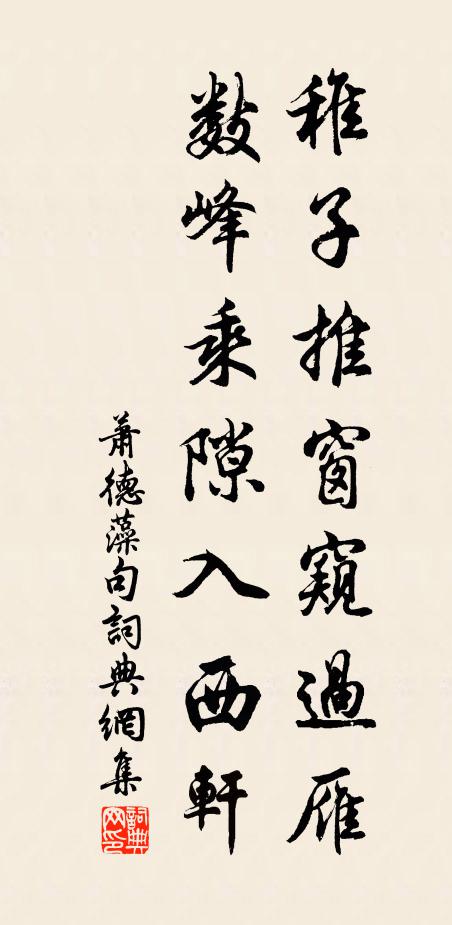 稚子推窗窺過雁
數峰乘隙入西軒
蕭德藻句詞典網集
詞典網印